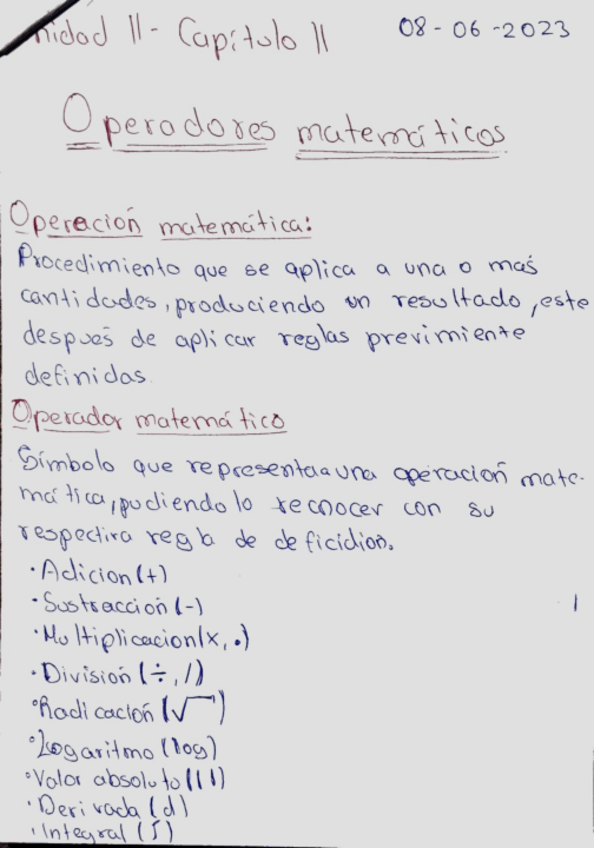 nidad II - Capítulo II 08-06-2023
Operadores matemáticos
Operación matemática:
Procedimiento que se aplica a una o más
cantidades, produciendo un resultado, este
después de aplicar reglas previmiente
definidas.
Operador matemático
Símbolo que representa a una operación mate-
mática, pudiendolo recnocer con su
respectiva regla de deficidion.
• Adicion (+)
• Sustracción (-)
• Multiplicacion (x, •)
• División (÷, /)
• Radicación (√)
• Logaritmo (log)
• Valor absoluto (| |)
• Derivada (d)
• Integral (∫)